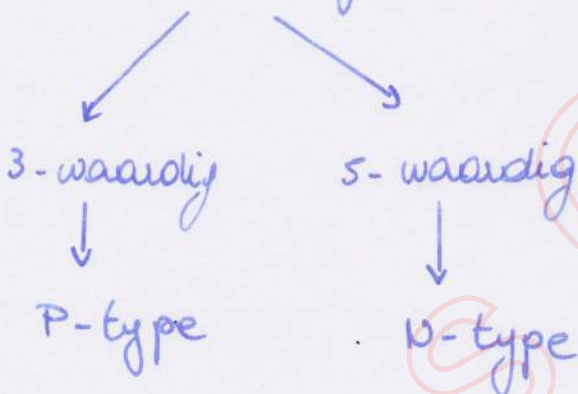 3-waardig 5-waardig
P-type N-type